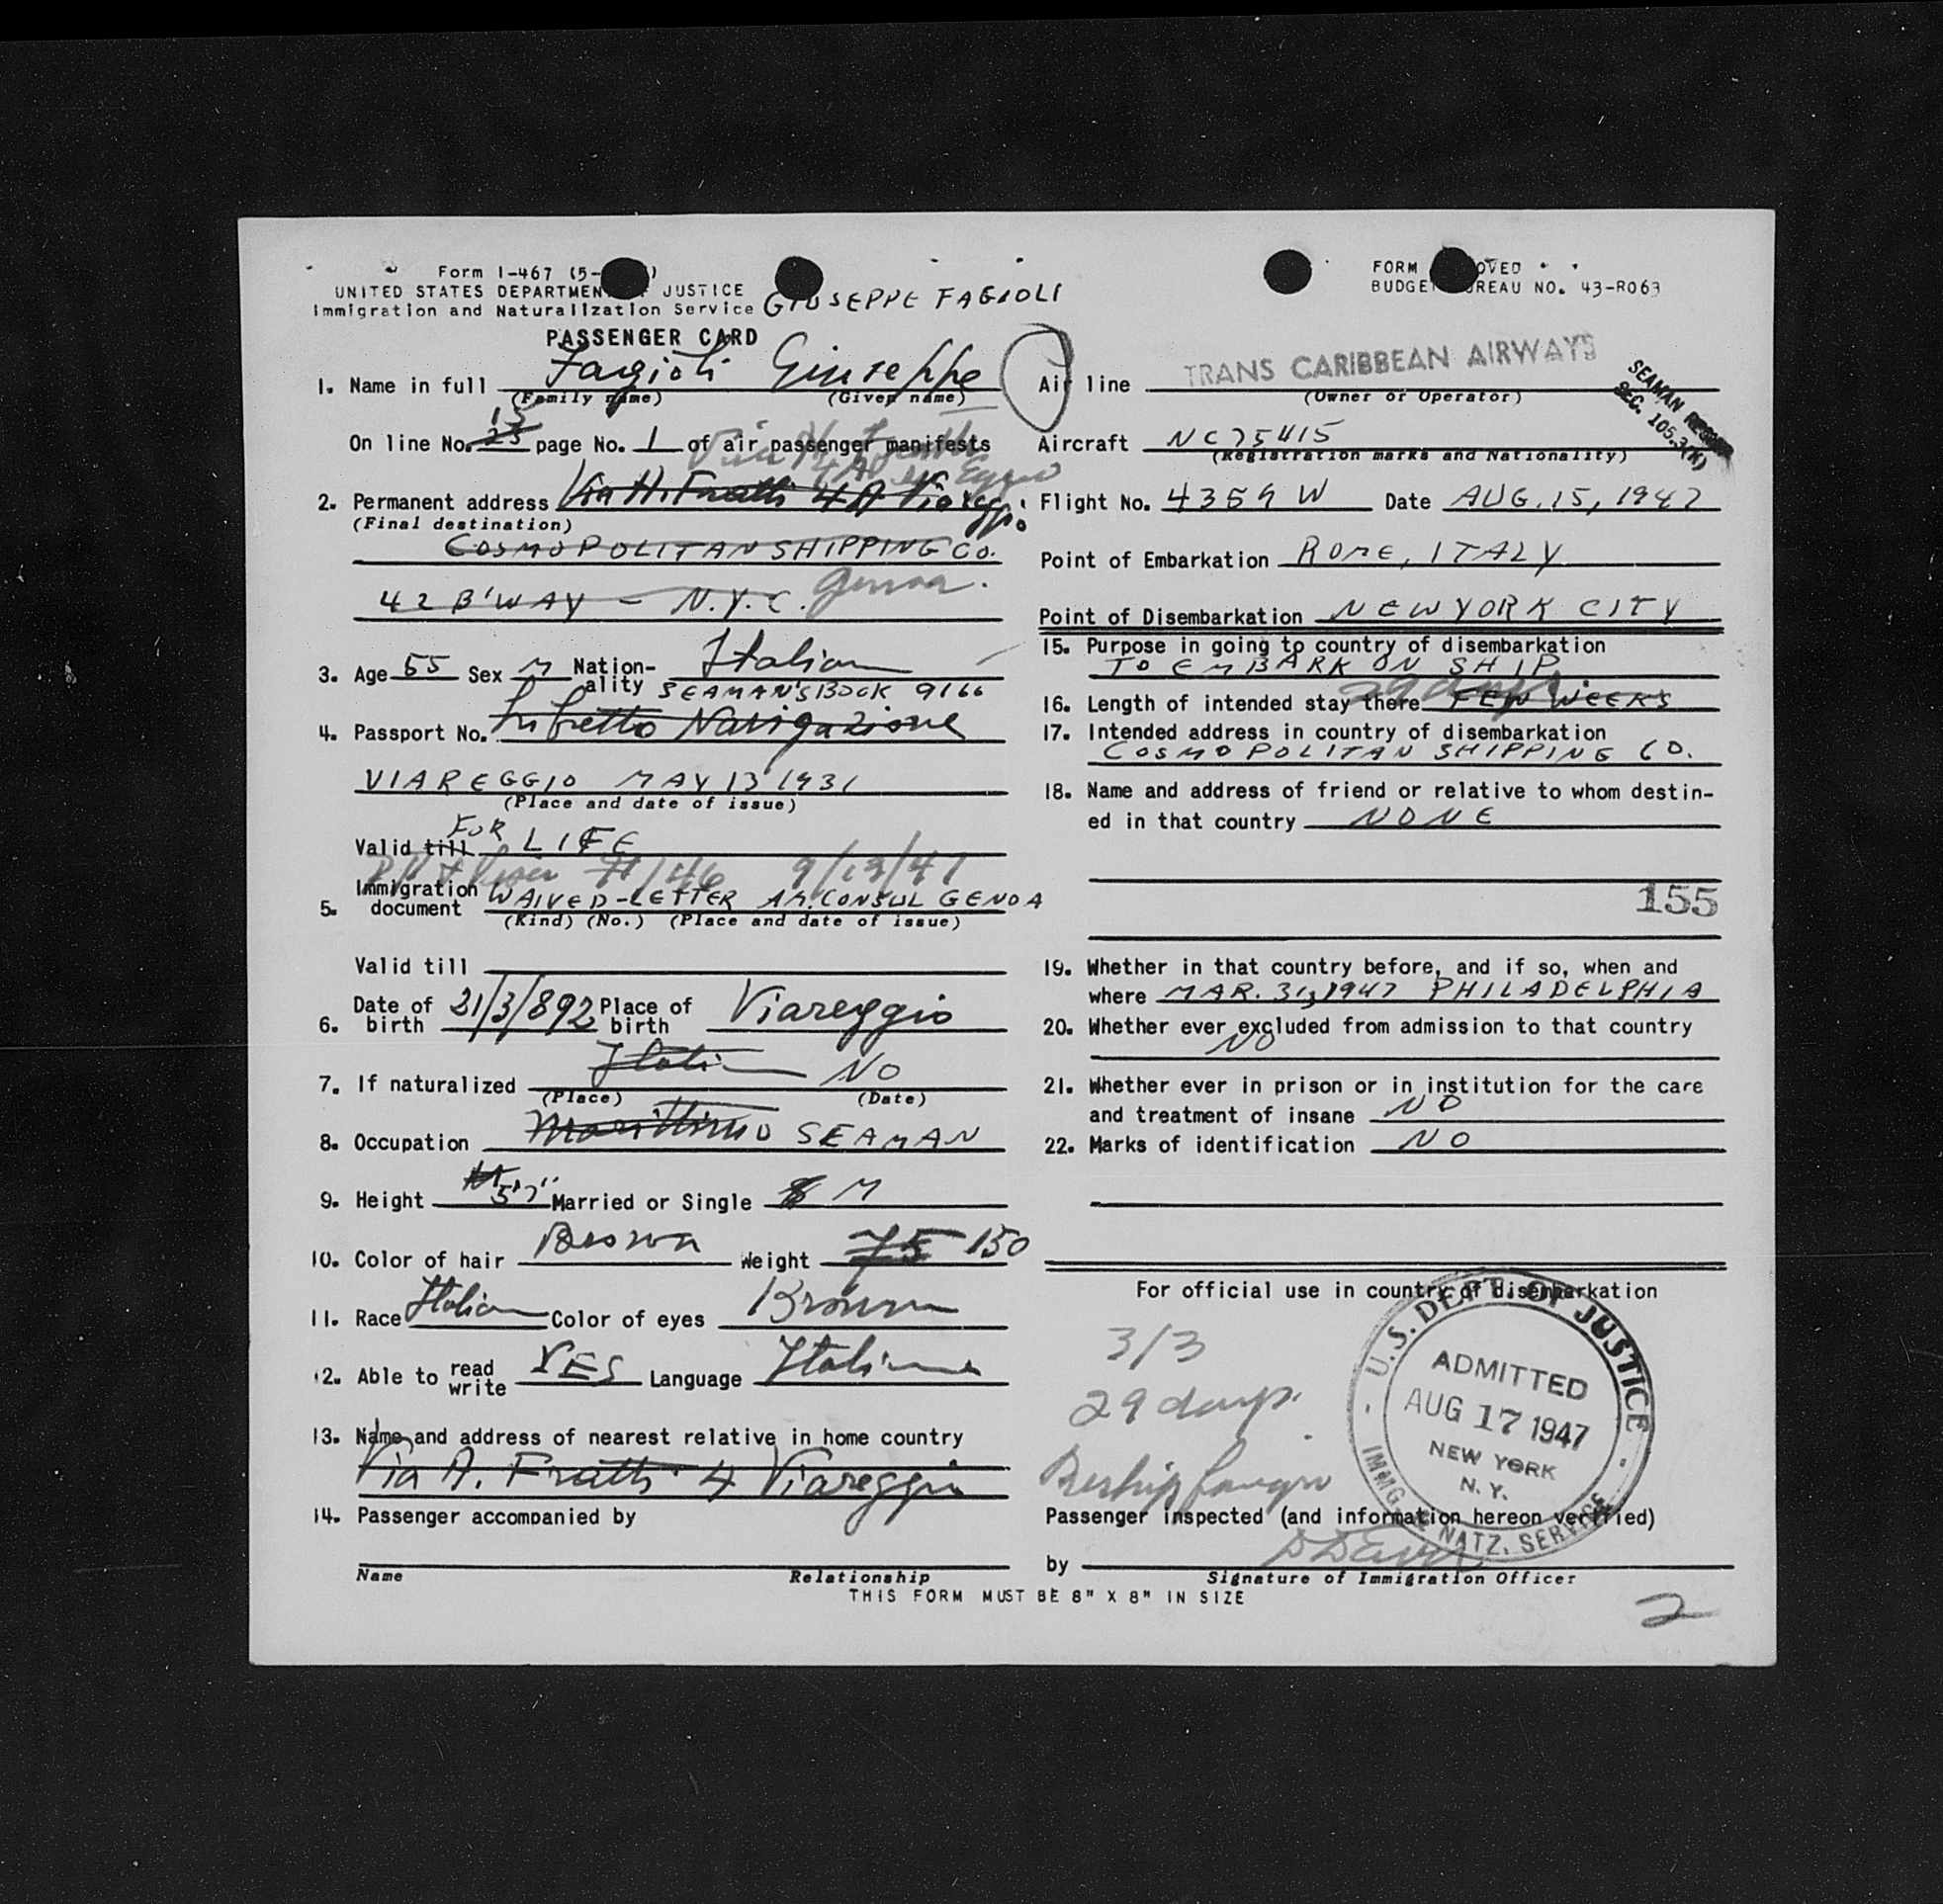 Form I-467 (5-
UNITED STATES DEPARTMENT JUSTICE
Immigration and Naturalization Service
GIUSEPPE FAGIOLI
PASSENGER CARD
1. Name in full Fagioli Giuseppe
(Family name) (Given name)
On line No. 25 15 page No. 1 of air passenger manifests
2. Permanent address Via A. Fratti 4A Viareggio
(Final destination)
COSMOPOLITAN SHIPPING CO.
42 B'WAY - N.Y.C. Genoa.
3. Age 55 Sex M Nation-ality Italian
SEAMAN'S BOOK 9166
4. Passport No. Libretto Navigazione
VIAREGGIO MAY 13 1931
(Place and date of issue)
Valid till FOR LIFE
9/13/47
5. Immigration document WAIVED-LETTER AM. CONSUL GENOA
(Kind) (No.) (Place and date of issue)
Valid till
6. Date of birth 21/3/892 Place of birth Viareggio
7. If naturalized Italia NO
(Place) (Date)
8. Occupation Marittimo SEAMAN
9. Height 5'7" Married or Single S M
10. Color of hair Brown Weight 75 150
11. Race Italian Color of eyes Brown
12. Able to read write YES Language Italian
13. Name and address of nearest relative in home country
Via A. Fratti 4 Viareggio
14. Passenger accompanied by
Name Relationship
THIS FORM MUST BE 8" X 8" IN SIZE
FORM OVED
BUDGET REAU NO. 43-R063
Air line TRANS CARIBBEAN AIRWAYS
(Owner or Operator)
SEAMAN
SEC. 105.3(K)
Aircraft NC75415
(Registration marks and Nationality)
Flight No. 4359 W Date AUG. 15, 1947
Point of Embarkation ROME, ITALY
Point of Disembarkation NEW YORK CITY
15. Purpose in going to country of disembarkation
TO EMBARK ON SHIP
16. Length of intended stay there FEW WEEKS 29 days
17. Intended address in country of disembarkation
COSMOPOLITAN SHIPPING CO.
18. Name and address of friend or relative to whom destin-
ed in that country NONE
155
19. Whether in that country before, and if so, when and
where MAR. 31, 1947 PHILADELPHIA
20. Whether ever excluded from admission to that country
NO
21. Whether ever in prison or in institution for the care
and treatment of insane NO
22. Marks of identification NO
For official use in country of disembarkation
3/3
29 days.
U.S. DEPT. OF JUSTICE
ADMITTED
AUG 17 1947
NEW YORK
N.Y.
IMMG. & NATZ. SERVICE
Passenger inspected (and information hereon verified)
by
Signature of Immigration Officer
2